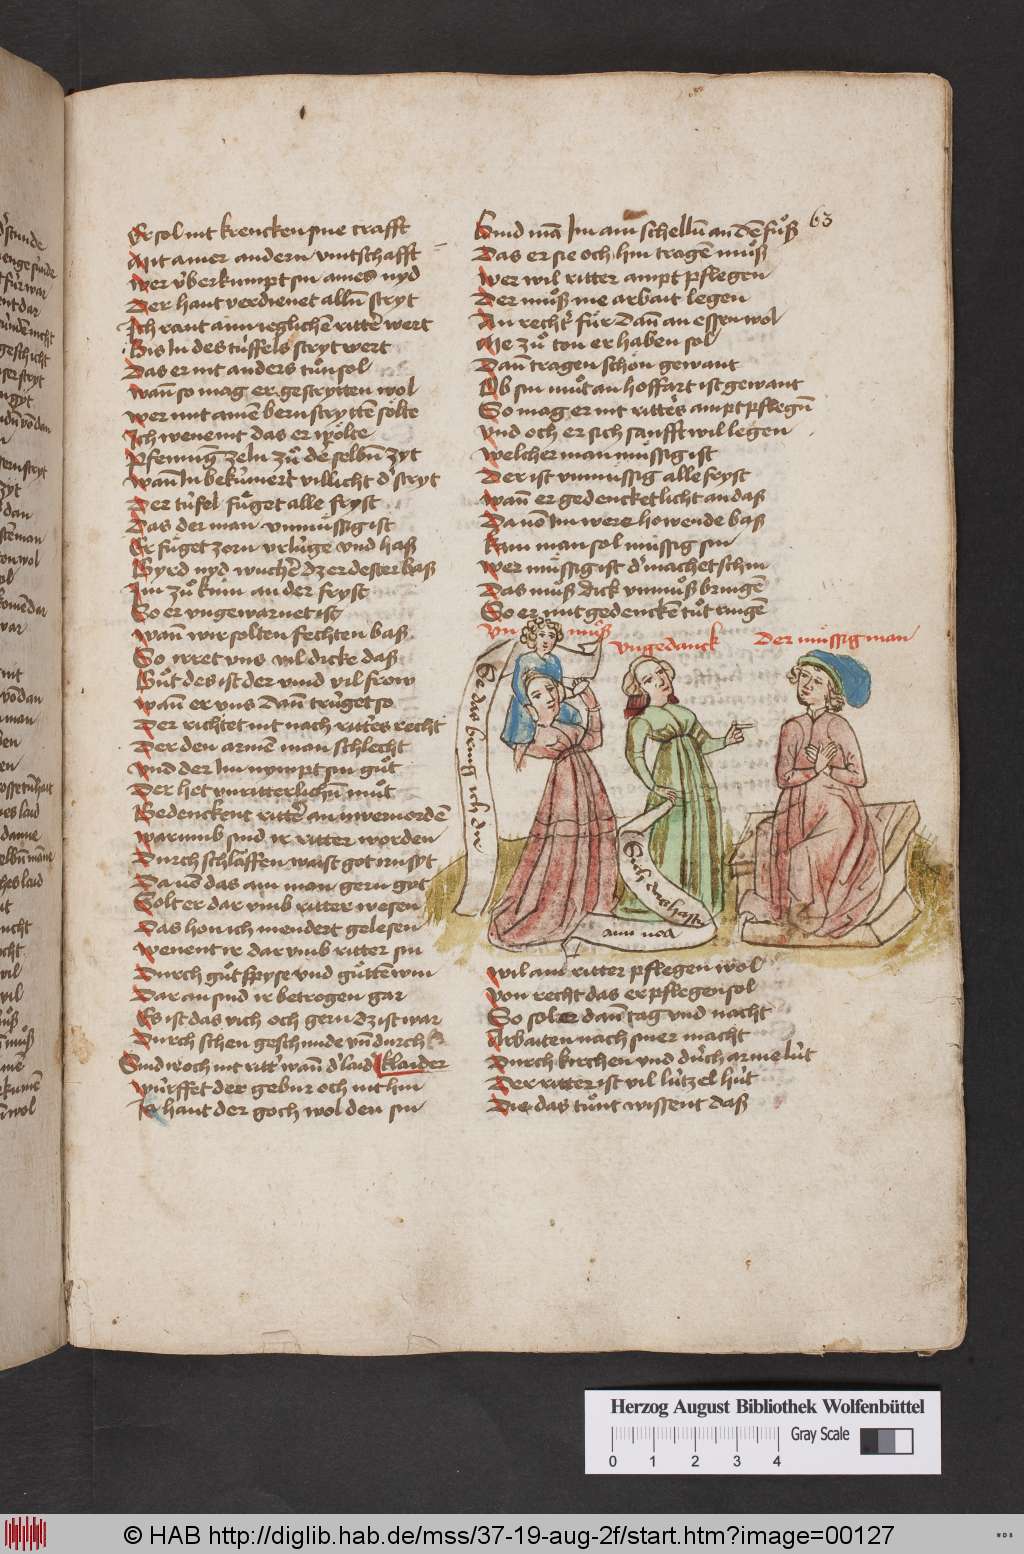 63
Er sol nit krencken sine crafft
Mit ainer andern rintschafft
Wer v̈berkumpt sin aines nyd
Der haut verdienet allen̄ stryt
Ich raut ainn ieglichē ritter wert
Bis In des tüffels stryt wert
Das er nit anders tůn sol
Wann̄ so mag er gestrytten wol
Wer mit ainē bern strytē sölte
Ich wene nit das er wölte
Pfenning zeln zů der selbn̄ zyt
Wann̄ In bekūmert villicht dˀ stryt
Der tüfel füget alle fryst
Das der man vnmüssig ist
Er füget zorn vrlüge vnd haß
Gyrd nyd wucher dz er dester baß
Im zů kūm an der fryst
So er vngewarnet ist
Wann̄ wir solten fechten baß
So irret vns vil dicke daß
Gůt des ist der wind vil frow
Wann̄ er vns dann̄ trüget so
Der richtet nit nach ritters recht
Der den armē man schlecht
Vnd der Im nympt sin gůt
Der het vnritterlichn̄ můt
Gedenckent ritter an üwern ordē
Warumb sind ir ritter worden
Durch schlaffen waist got
Da von das ain man gern
Solt er dar vmb ritter wesen
Das hon ich niendert gelesen
Wenent ir dar vmb ritter sin
Durch gůt spyse vnd gůtten win
Dar an sind ir betrogen gar
Es ist das vich och gern dz ist war
Durch schen geschmide vn̄ durch
Sind ir och nit rittˀ wann̄ dˀ laid klaider
Würffet der gebur och nit hin
Er haut der goch wol den sin
Vnd mā Im ain schelln̄ an dē fůß
Das er sie och hin tragen můß
Wer wil ritter ampt pflegen
Der můß me arbait legen
An rechtˀ für dann̄ an essen wol
Me zů ton er haben sol
Dann̄ tragen schön gewant
Ob sin můt an hoffart ist gewant
So mag er nit ritters ampt pflegn̄
Vnd och er sich sanfft wil legen
Welcher man müssig ist
Der ist vnmüssig alle fryst
Wann̄ er gedencket licht an daß
Da von Im were howende baß
Kain man sol müssig sin
Wer müssig ist dˀ machet schin
Das müß dick vnmůß bringē
So er mit gedenckē tůt ringē
Vn můß
vngedanck
Der müssig man
Se das bring ich dir
Sich das haist
Wil ain ritter pflegen wol
Von recht das er pflegen sol
So sol er dann̄ tag vnd nacht
Arbaiten nach siner macht
Durch kirchen vnd dürch arme lüt
Der ritter ist vil lützel hüt
Die das tůnt wissent daß
Herzog August Bibliothek Wolfenbüttel
Gray Scale
0 1 2 3 4
© HAB http://diglib.hab.de/mss/37-19-aug-2f/start.htm?image=00127